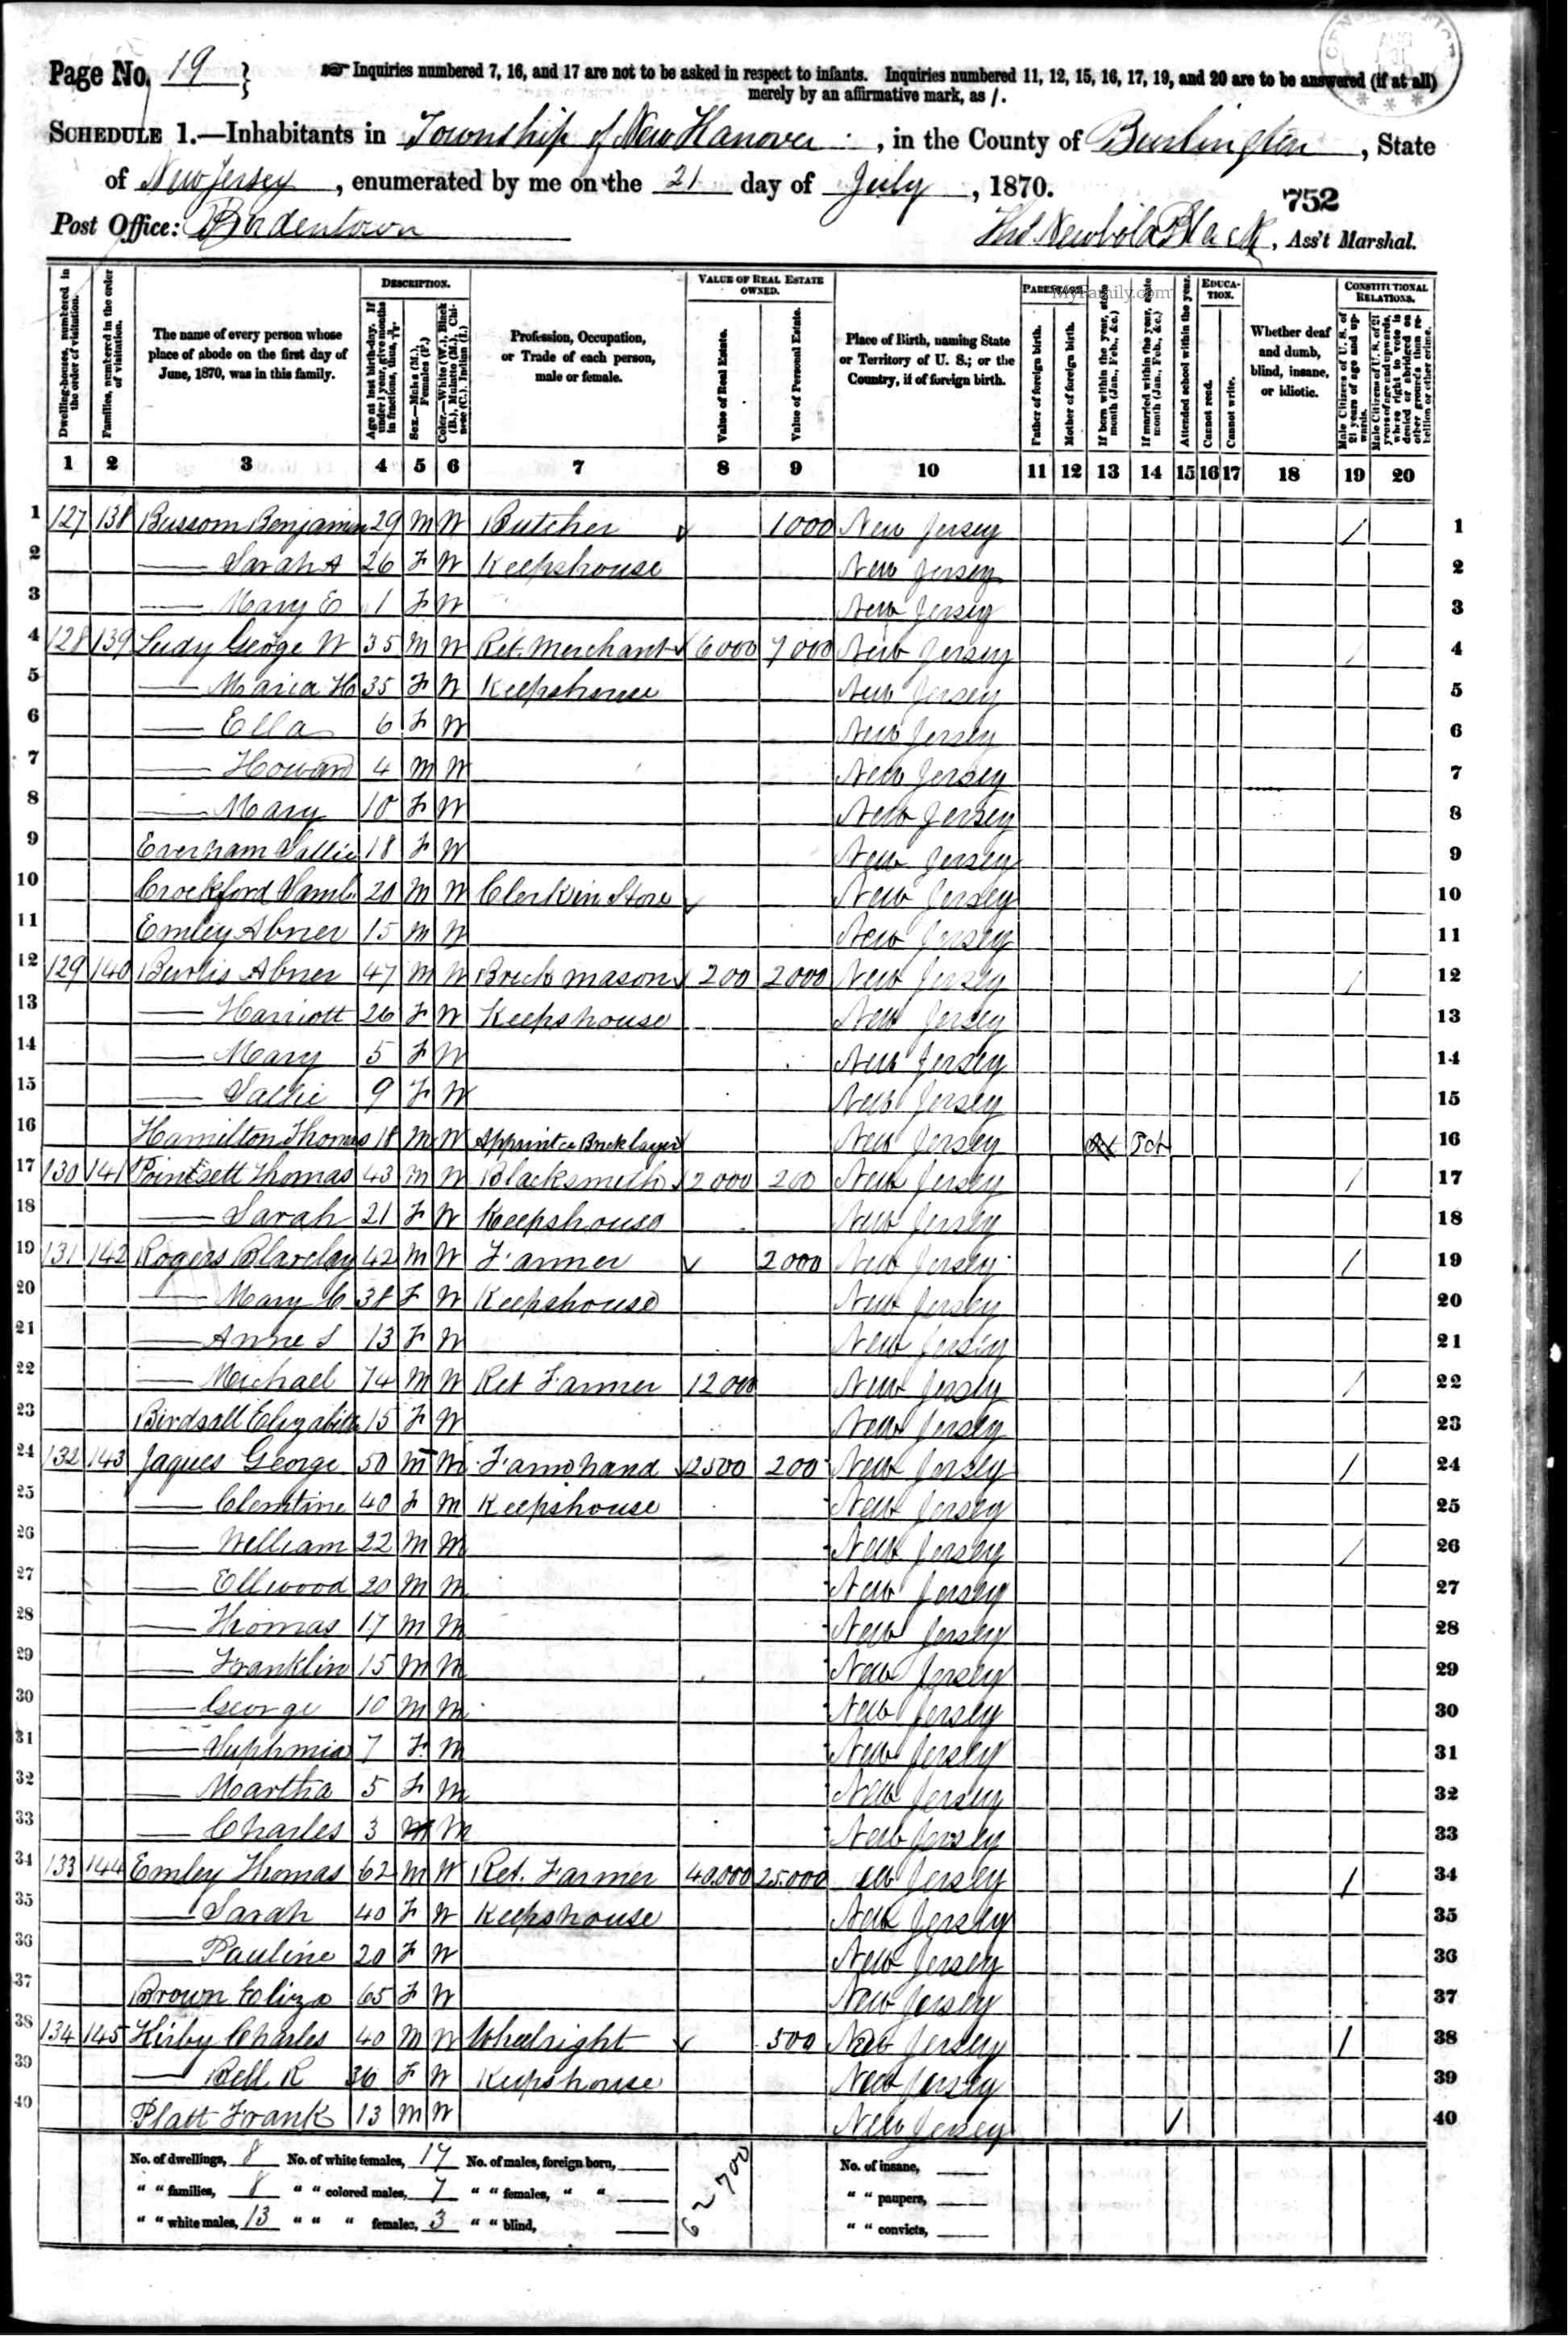 Page No. 19 } ☞ Inquiries numbered 7, 16, and 17 are not to be asked in respect to infants. Inquiries numbered 11, 12, 15, 16, 17, 19, and 20 are to be answered (if at all)
merely by an affirmative mark, as /.
SCHEDULE 1.—Inhabitants in Township of New Hanover, in the County of Burlington, State
of New Jersey, enumerated by me on the 21 day of July, 1870.
752
Post Office: Bordentown Newbold Black, Ass't Marshal.
MyFamily.com
Dwelling-houses, numbered in the order of visitation.
Families, numbered in the order of visitation.
The name of every person whose place of abode on the first day of June, 1870, was in this family.
DESCRIPTION.
Age at last birth-day. If under 1 year, give months in fractions, thus,
Sex.—Males (M.), Females (F.)
Color.—White (W.), Black (B.), Mulatto (M.), Chinese (C.), Indian (I.)
Profession, Occupation, or Trade of each person, male or female.
VALUE OF REAL ESTATE OWNED.
Value of Real Estate.
Value of Personal Estate.
Place of Birth, naming State or Territory of U. S.; or the Country, if of foreign birth.
PARENTAGE.
Father of foreign birth.
Mother of foreign birth.
If born within the year, state month (Jan., Feb., &c.)
If married within the year, state month (Jan., Feb., &c.)
Attended school within the year.
EDUCATION.
Cannot read.
Cannot write.
Whether deaf and dumb, blind, insane, or idiotic.
CONSTITUTIONAL RELATIONS.
Male Citizens of U. S. of 21 years of age and upwards.
Male Citizens of U. S. of 21 years of age and upwards, where right to vote is denied or abridged on other grounds than rebellion or other crime.
1 2 3 4 5 6 7 8 9 10 11 12 13 14 15 16 17 18 19 20
1 127 138 Bussom Benjamin 29 M W Butcher 1000 New Jersey / 1
2 — Sarah A 26 F W Keepshouse New Jersey 2
3 — Mary E 1 F W New Jersey 3
4 128 139 Ludy George W 35 M W Ret. Merchant 6000 7000 New Jersey / 4
5 — Maria H 35 F W Keepshouse New Jersey 5
6 — Ella 6 F W New Jersey 6
7 — Howard 4 M W New Jersey 7
8 — Mary 10 F W New Jersey 8
9 Everham Sallie 18 F W New Jersey 9
10 Crockford Saml. 20 M W Clerk in Store New Jersey 10
11 Emley Abner 15 M W New Jersey 11
12 129 140 Burtis Abner 47 M W Brick mason 200 2000 New Jersey / 12
13 — Harriott 26 F W Keepshouse New Jersey 13
14 — Mary 5 F W New Jersey 14
15 — Sallie 9 F W New Jersey 15
16 Hamilton Thomas 18 M W Apprintce Bricklayer New Jersey Oct 16
17 130 141 Pointsett Thomas 43 M W Blacksmith 2000 200 New Jersey / 17
18 — Sarah 21 F W Keepshouse New Jersey 18
19 131 142 Rogers Barclay 42 M W Farmer 2000 New Jersey / 19
20 — Mary C 38 F W Keepshouse New Jersey 20
21 — Anne S 13 F W New Jersey 21
22 — Michael 74 M W Ret Farmer 12000 New Jersey / 22
23 Birdsall Elizabeth 15 F W New Jersey 23
24 132 143 Jaques George 50 M M Farmhand 2500 200 New Jersey / 24
25 — Clemtine 40 F M Keepshouse New Jersey 25
26 — William 22 M M New Jersey / 26
27 — Ellwood 20 M M New Jersey 27
28 — Thomas 17 M M New Jersey 28
29 — Franklin 15 M M New Jersey 29
30 — George 10 M M New Jersey 30
31 — Suphmia 7 F M New Jersey 31
32 — Martha 5 F M New Jersey 32
33 — Charles 3 M M New Jersey 33
34 133 144 Emley Thomas 62 M W Ret. Farmer 40.000 25.000 New Jersey / 34
35 — Sarah 40 F W Keepshouse New Jersey 35
36 — Pauline 20 F W New Jersey 36
37 Brown Eliza 65 F W New Jersey 37
38 134 145 Kirby Charles 40 M W Wheelright 500 New Jersey / 38
39 — Bell R 36 F W Keepshouse New Jersey 39
40 Platt Frank 13 M W New Jersey / 40
No. of dwellings, 8 No. of white females, 17 No. of males, foreign born, 62700 No. of insane,
" " families, 8 " " colored males, 7 " " females, " " " " paupers,
" " white males, 13 " " " females, 3 " " blind, " " convicts,